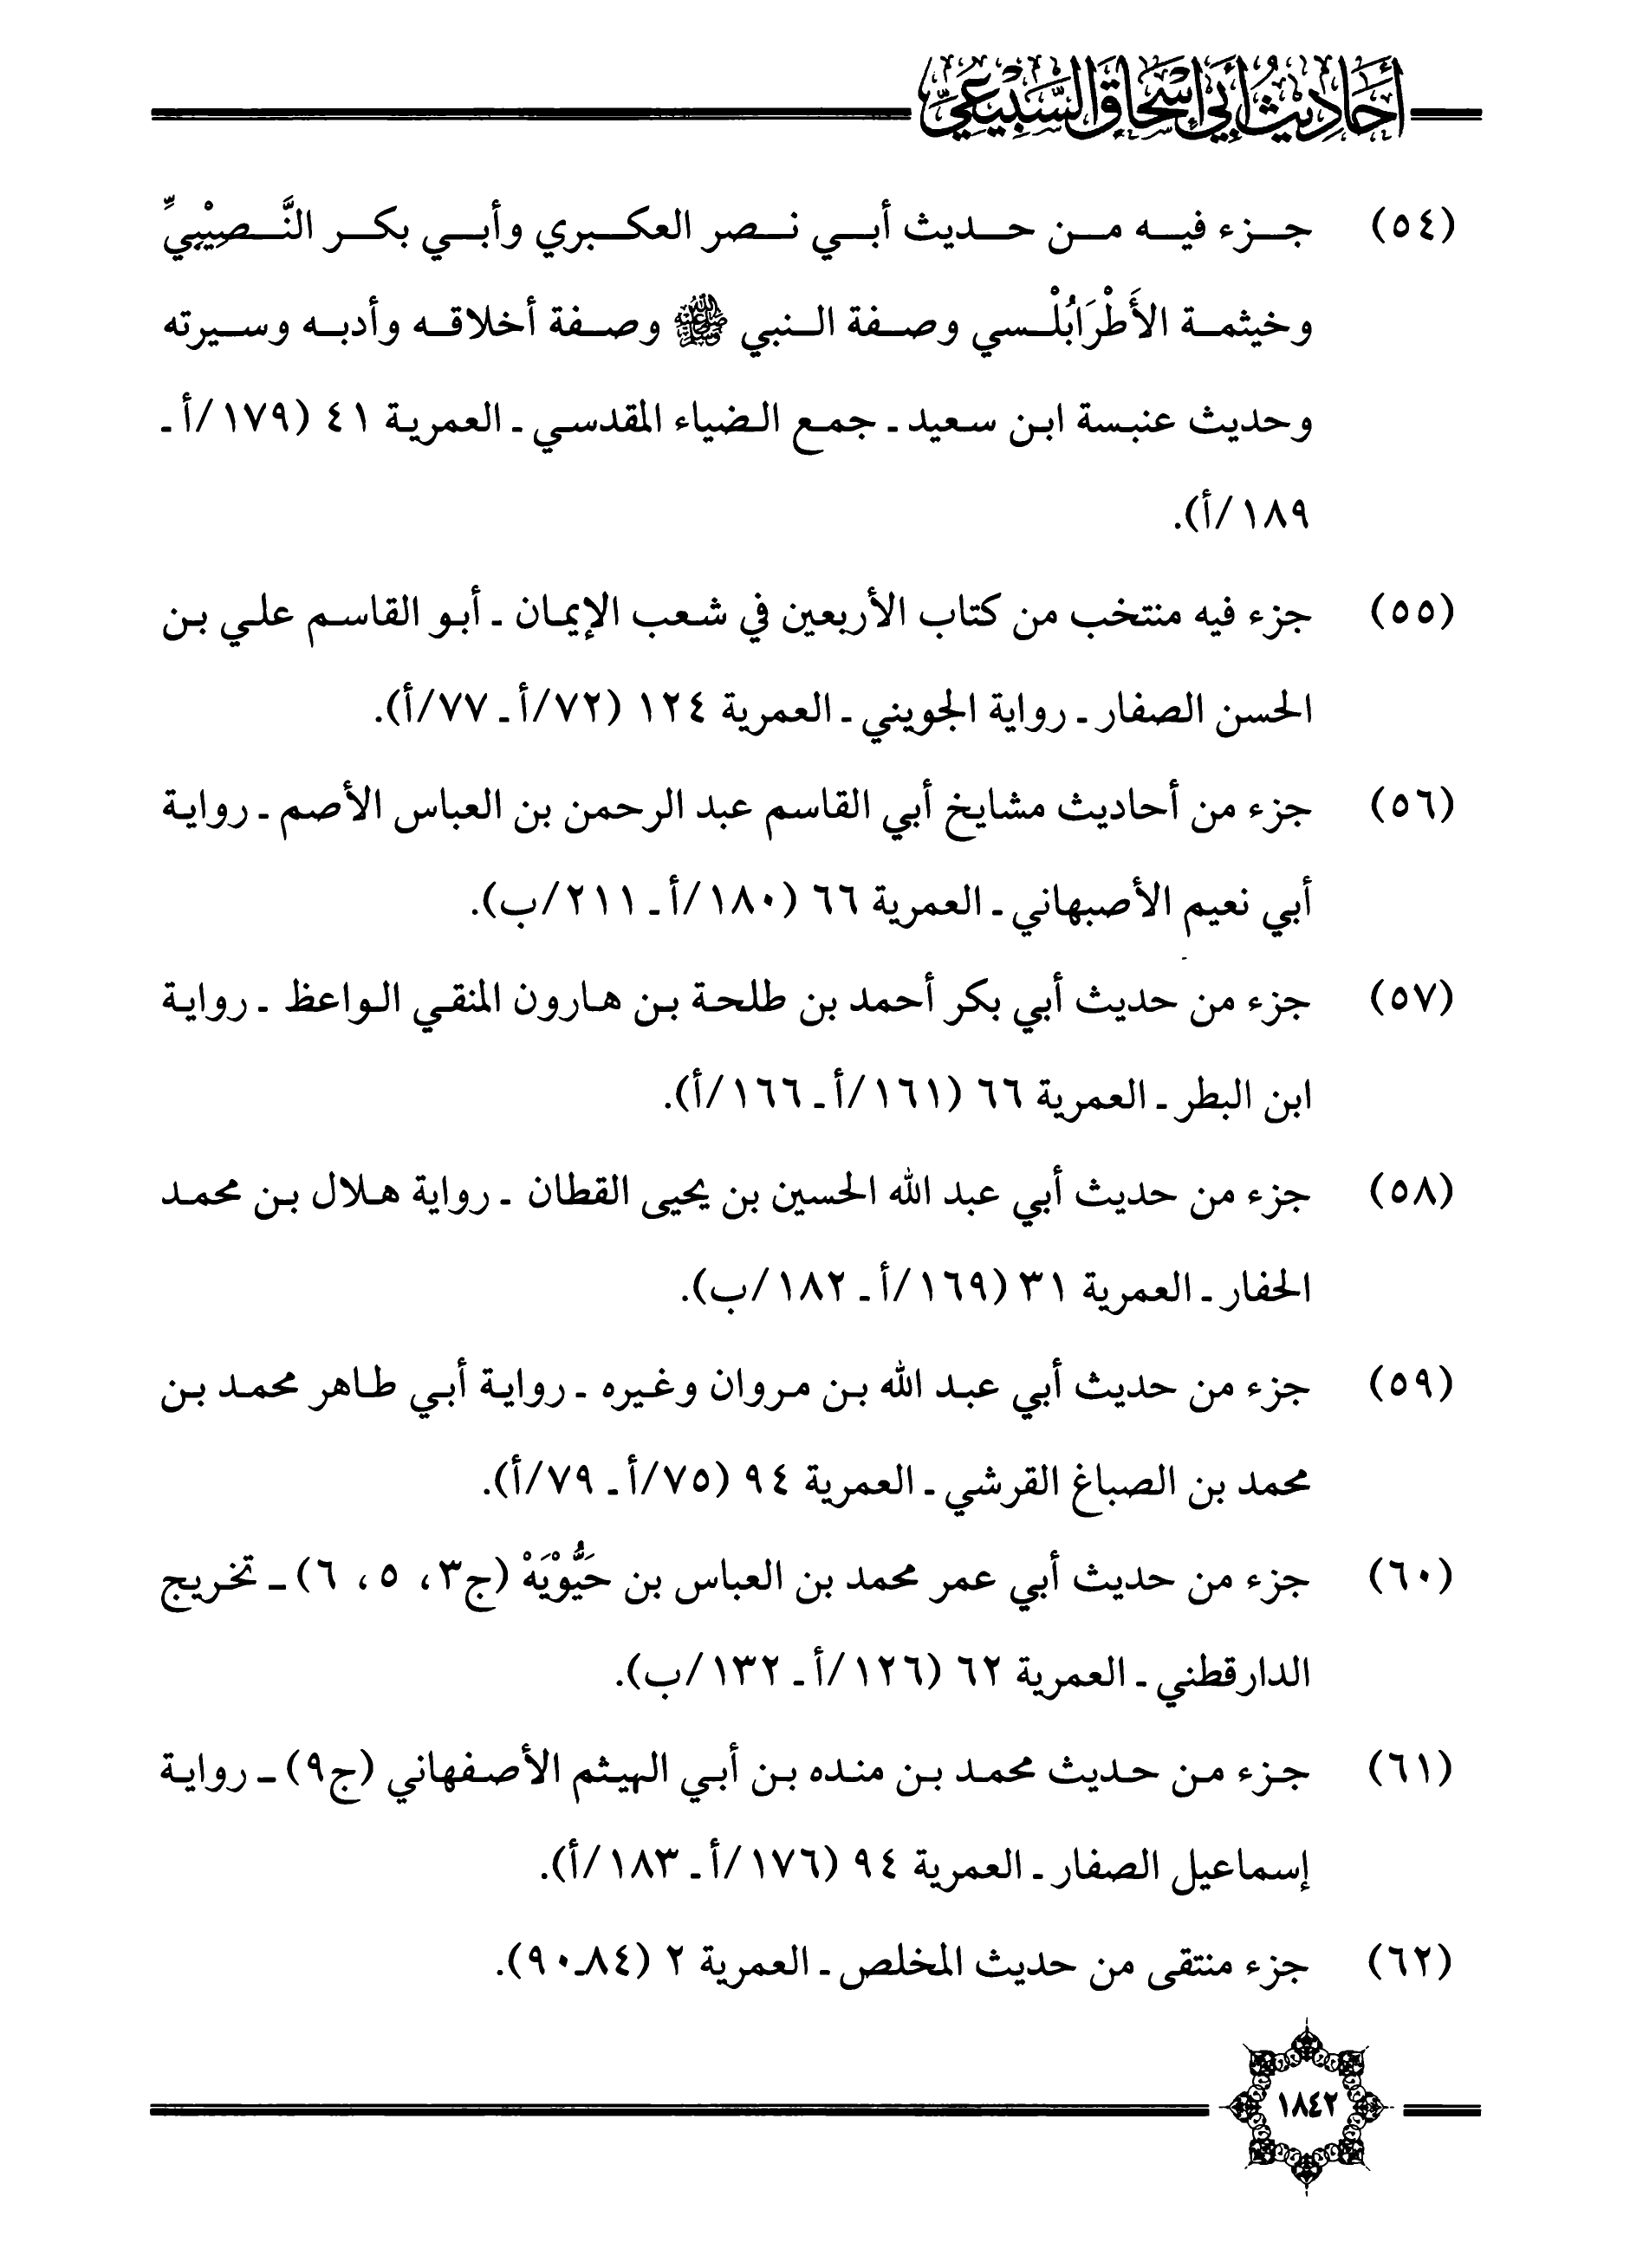 أَحَادِيْثُ أَبِي إِسْحَاقَ السَّبِيْعِيِّ
(٥٤) جزء فيه من حديث أبي نصر العكبري وأبي بكر النَّصِيْبِيِّ
وخيثمة الأَطْرَابُلْسي وصفة النبي ﷺ وصفة أخلاقه وأدبه وسيرته
وحديث عنبسة ابن سعيد ـ جمع الضياء المقدسي ـ العمرية ٤١ (١٧٩/أ ـ
١٨٩/أ).
(٥٥) جزء فيه منتخب من كتاب الأربعين في شعب الإيمان ـ أبو القاسم علي بن
الحسن الصفار ـ رواية الجويني ـ العمرية ١٢٤ (٧٢/أ ـ ٧٧/أ).
(٥٦) جزء من أحاديث مشايخ أبي القاسم عبد الرحمن بن العباس الأصم ـ رواية
أبي نعيم الأصبهاني ـ العمرية ٦٦ (١٨٠/أ ـ ٢١١/ب).
(٥٧) جزء من حديث أبي بكر أحمد بن طلحة بن هارون المنقي الواعظ ـ رواية
ابن البطر ـ العمرية ٦٦ (١٦١/أ ـ ١٦٦/أ).
(٥٨) جزء من حديث أبي عبد الله الحسين بن يحيى القطان ـ رواية هلال بن محمد
الحفار ـ العمرية ٣١ (١٦٩/أ ـ ١٨٢/ب).
(٥٩) جزء من حديث أبي عبد الله بن مروان وغيره ـ رواية أبي طاهر محمد بن
محمد بن الصباغ القرشي ـ العمرية ٩٤ (٧٥/أ ـ ٧٩/أ).
(٦٠) جزء من حديث أبي عمر محمد بن العباس بن حَيُّوْيَهْ (ج٣، ٥، ٦) ـ تخريج
الدارقطني ـ العمرية ٦٢ (١٢٦/أ ـ ١٣٢/ب).
(٦١) جزء من حديث محمد بن منده بن أبي الهيثم الأصفهاني (ج٩) ـ رواية
إسماعيل الصفار ـ العمرية ٩٤ (١٧٦/أ ـ ١٨٣/أ).
(٦٢) جزء منتقى من حديث المخلص ـ العمرية ٢ (٨٤ـ٩٠).
١٨٤٢